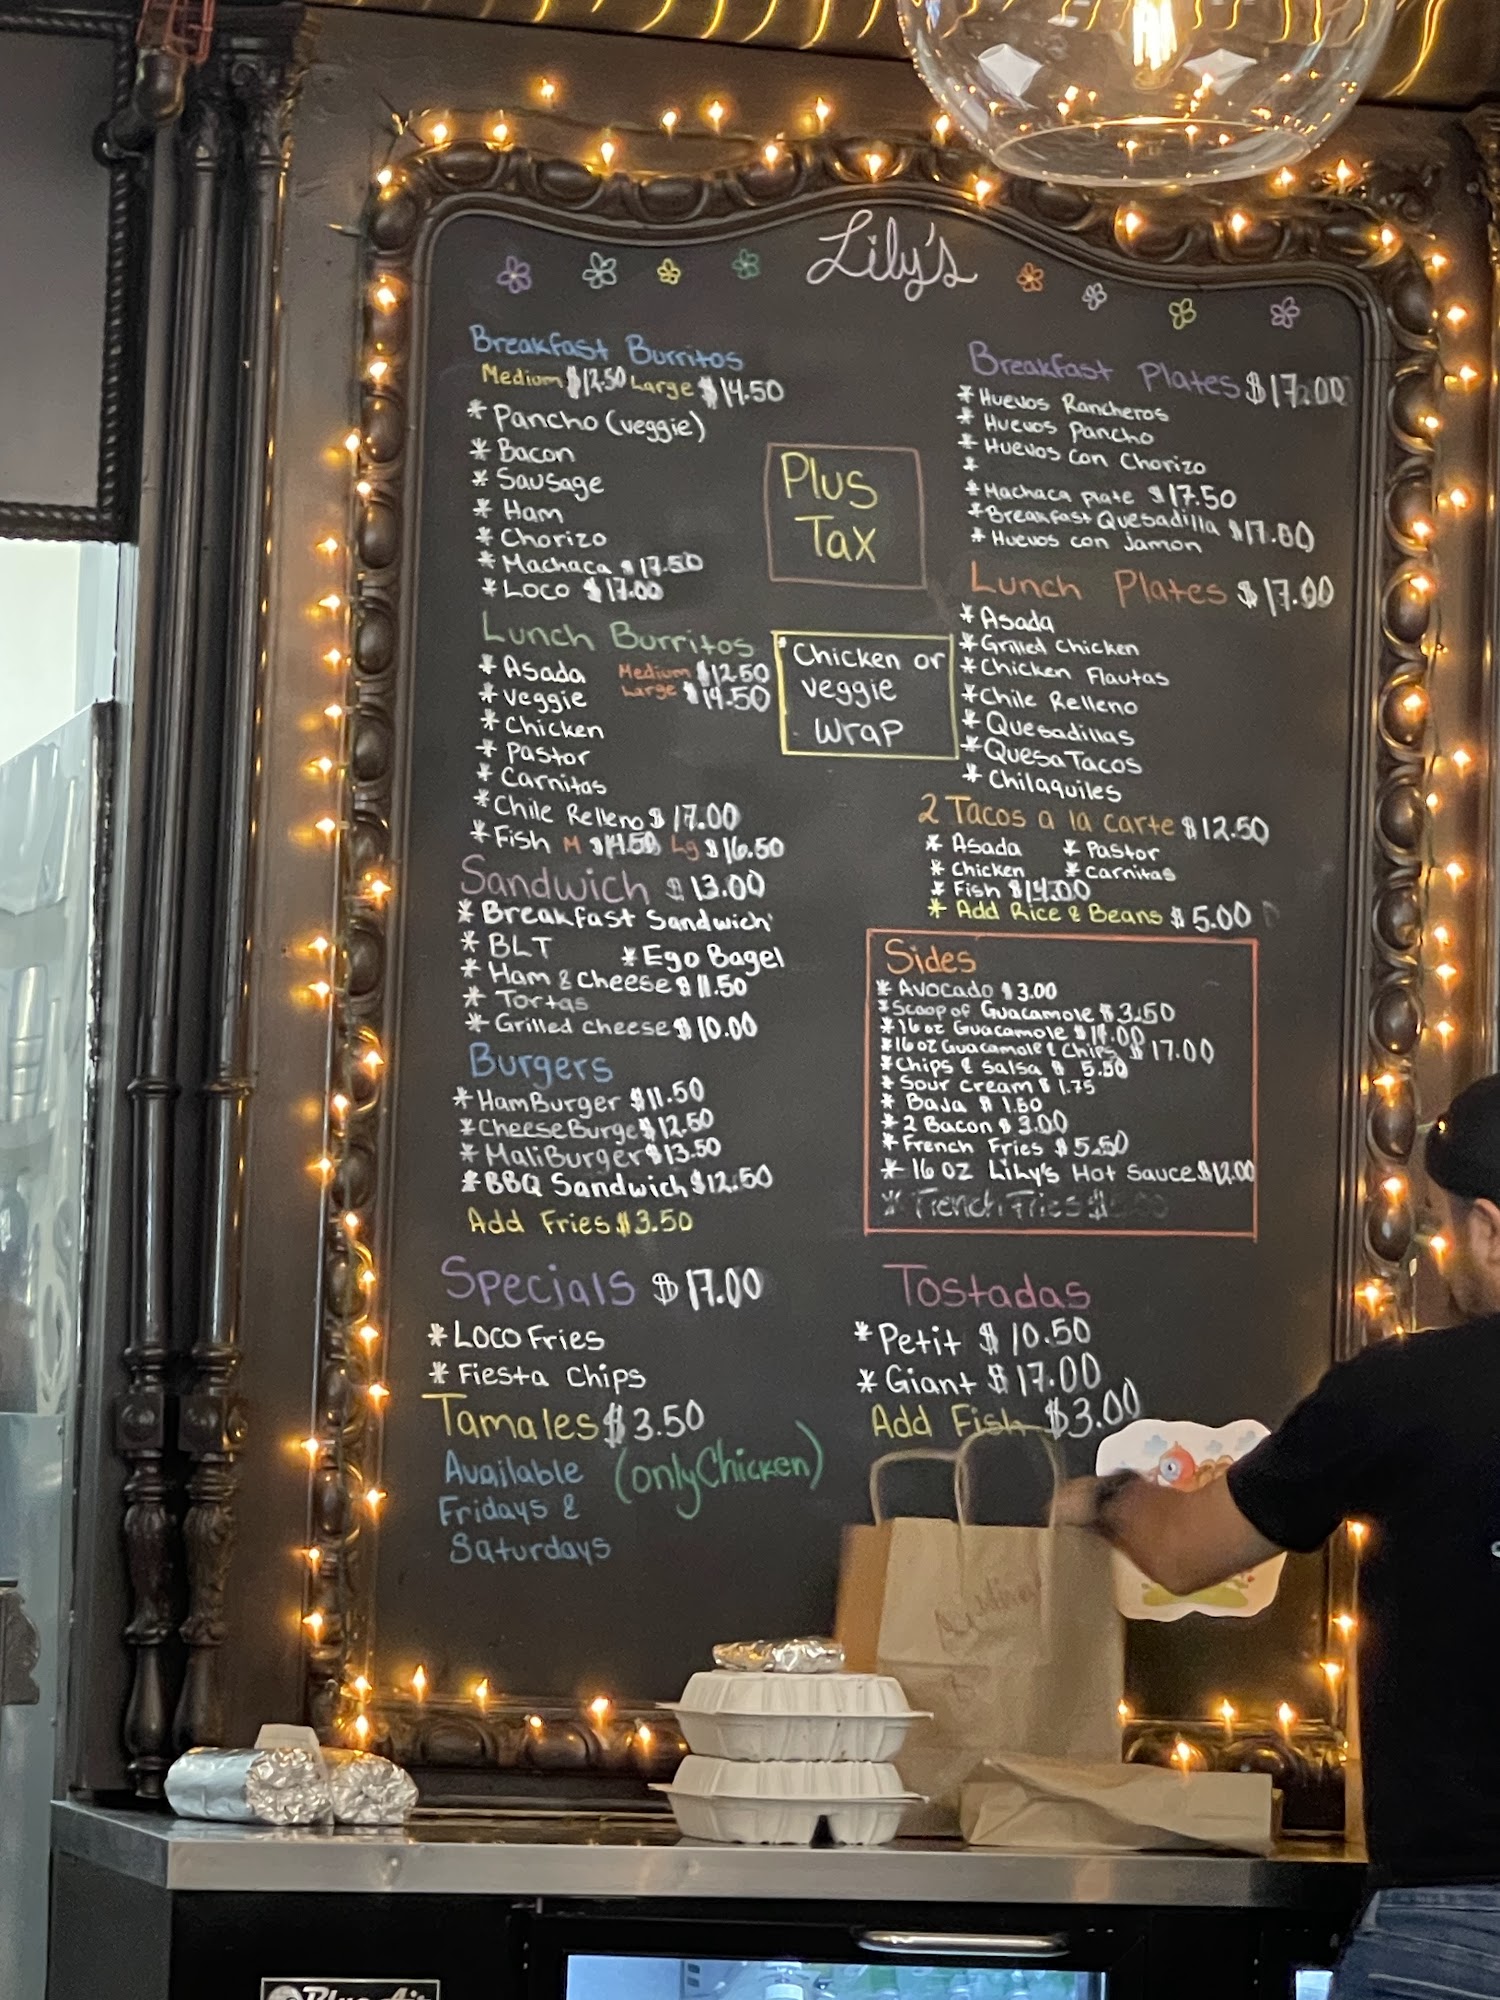 Lily's
Breakfast Burritos
Medium $12.50 Large $14.50
* Pancho (veggie)
* Bacon
* Sausage
* Ham
* Chorizo
* Machaca $17.50
* Loco $17.00
Lunch Burritos
* Asada Medium $12.50
* Veggie Large $14.50
* Chicken
* Pastor
* Carnitas
* Chile Relleno $17.00
* Fish M $14.50 Lg $16.50
Sandwich $13.00
* Breakfast Sandwich
* BLT * Ego Bagel
* Ham & Cheese $11.50
* Tortas
* Grilled cheese $10.00
Burgers
* HamBurger $11.50
* CheeseBurge $12.50
* MaliBurger $13.50
* BBQ Sandwich $12.50
Add Fries $3.50
Specials $17.00
* Loco Fries
* Fiesta Chips
Tamales $3.50
Available (only Chicken)
Fridays &
Saturdays
Plus
Tax
* Chicken or
veggie
Wrap
Breakfast Plates $17.00
* Huevos Rancheros
* Huevos Pancho
* Huevos con Chorizo
*
* Machaca plate $17.50
* Breakfast Quesadilla $17.00
* Huevos con jamon
Lunch Plates $17.00
* Asada
* Grilled Chicken
* Chicken Flautas
* Chile Relleno
* Quesadillas
* QuesaTacos
* Chilaquiles
2 Tacos a la carte $12.50
* Asada * Pastor
* Chicken * Carnitas
* Fish $14.00
* Add Rice & Beans $5.00
Sides
* Avocado $3.00
* Scoop of Guacamole $3.50
* 16 oz Guacamole $14.00
* 16 oz Guacamole & Chips $17.00
* Chips & salsa $ 5.50
* Sour cream $1.75
* Baja $1.50
* 2 Bacon $3.00
* French Fries $5.50
* 16 oz Lily's Hot Sauce $12.00
* French Fries $
Tostadas
* Petit $10.50
* Giant $17.00
Add Fish $3.00
Blue Air